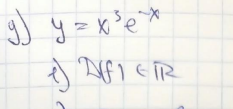 g) y = x³e⁻ˣ
1) D(f) ∈ ℝ